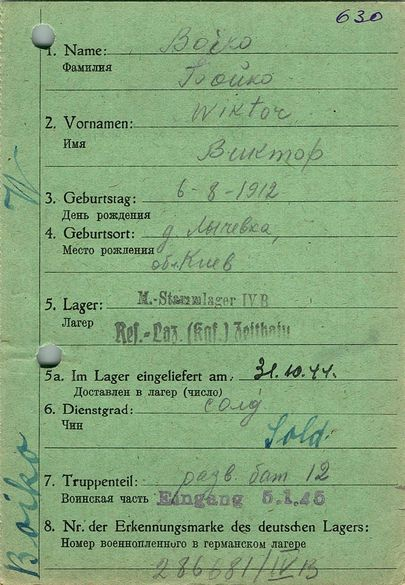 630
1. Name: Boiko
Фамилия
Бойко
Wiktor
2. Vornamen:
Имя
Виктор
3. Geburtstag: 6-8-1912
День рождения
4. Geburtsort: д Лычевка,
Место рождения
обл Киев
5. Lager: M.-Stammlager IV B
Лагер
Res.-Laz. (Kgf.) Zeithain
5a. Im Lager eingeliefert am: 31.10.44.
Доставлен в лагер (число)
6. Dienstgrad: солд
Чин
Sold.
7. Truppenteil: разв. бат 12
Воинская часть Eingang 5.1.45
8. Nr. der Erkennungsmarke des deutschen Lagers:
Номер военнопленного в германском лагере
286681/IVB
W
Boiko